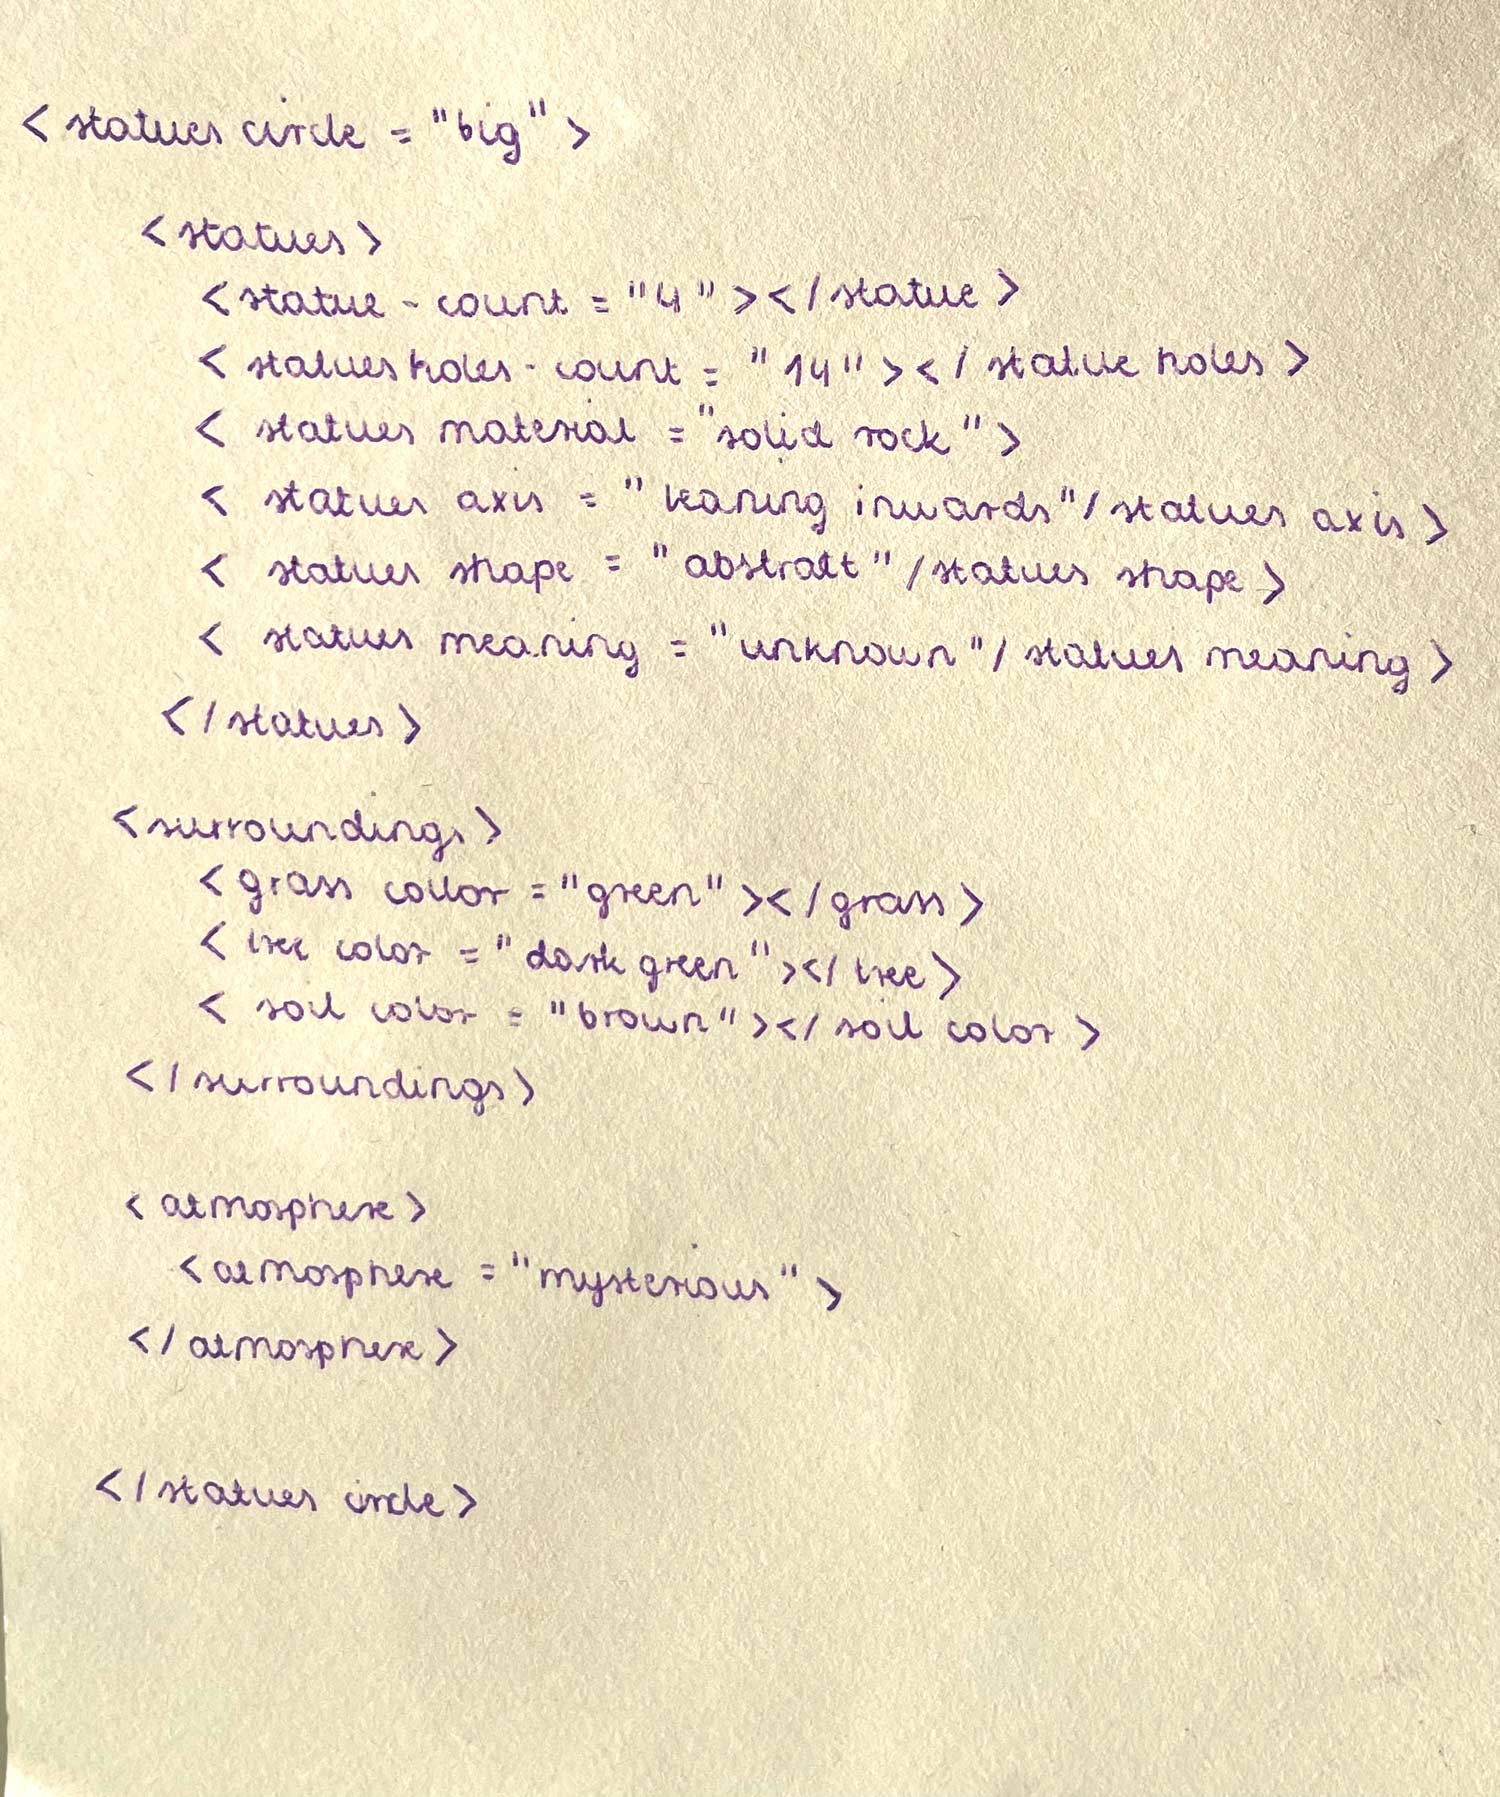 <statues circle = "big">
<statues>
<statue-count = "4"></statue>
<statues holes-count = "14"></statue holes>
<statues material = "solid rock">
<statues axis = "leaning inwards"/statues axis>
<statues shape = "abstratt"/statues shape>
<statues meaning = "unknown"/statues meaning>
</statues>
<surroundings>
<grass collor = "green"></grass>
<tree color = "dark green"></tree>
<soil color = "brown"></soil color>
</surroundings>
<atmosphere>
<atmosphere = "mysterious">
</atmosphere>
</statues circle>